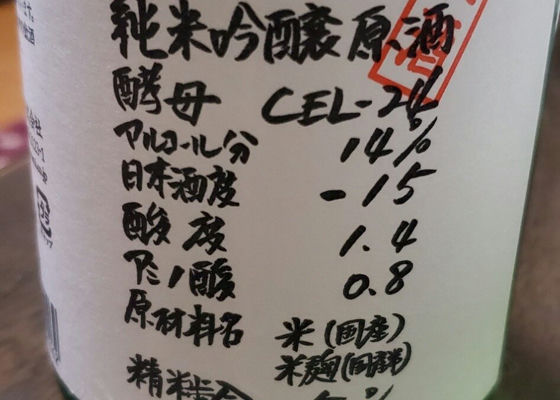 純米吟醸原酒
酵母 CEL-24
アルコール分 14%
日本酒度 -15
酸度 1.4
アミノ酸 0.8
原材料名 米(国産)
米麹(国産米)
精米歩合